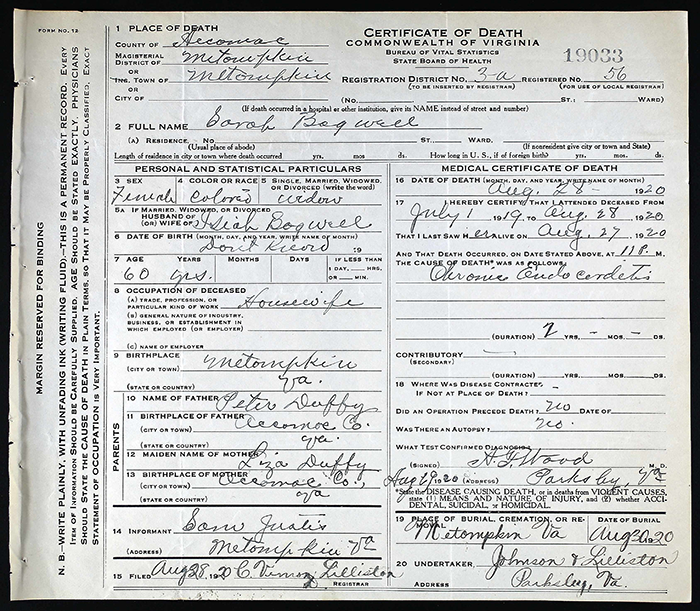 FORM NO. 12
MARGIN RESERVED FOR BINDING
N. B.—WRITE PLAINLY, WITH UNFADING INK (WRITING FLUID).—THIS IS A PERMANENT RECORD. EVERY
ITEM OF INFORMATION SHOULD BE CAREFULLY SUPPLIED. AGE SHOULD BE STATED EXACTLY. PHYSICIANS
SHOULD STATE THE CAUSE OF DEATH IN PLAIN TERMS, SO THAT IT MAY BE PROPERLY CLASSIFIED. EXACT
STATEMENT OF OCCUPATION IS VERY IMPORTANT.
1 PLACE OF DEATH
COUNTY OF Accomac
MAGISTERIAL DISTRICT OF Metompkin
OR
INC. TOWN OF Metompkin
OR
CITY OF (No. ST.: WARD)
CERTIFICATE OF DEATH
COMMONWEALTH OF VIRGINIA
BUREAU OF VITAL STATISTICS
STATE BOARD OF HEALTH
19033
REGISTRATION DISTRICT NO. 3-a REGISTERED NO. 56
(TO BE INSERTED BY REGISTRAR) (FOR USE OF LOCAL REGISTRAR)
(If death occurred in a hospital or other institution, give its NAME instead of street and number)
2 FULL NAME Sarah Bagwell
(A) RESIDENCE. No. ST. WARD.
(Usual place of abode) (If nonresident give city or town and State)
Length of residence in city or town where death occurred yrs. mos. ds. How long in U. S., if of foreign birth? yrs. mos. ds.
PERSONAL AND STATISTICAL PARTICULARS
3 SEX Female
4 COLOR OR RACE Colored
5 SINGLE, MARRIED, WIDOWED, OR DIVORCED (write the word) widow
5A IF MARRIED, WIDOWED, OR DIVORCED
HUSBAND OF
(OR) WIFE OF Isiah Bagwell
6 DATE OF BIRTH (MONTH, DAY, AND YEAR, WRITE NAME OF MONTH)
Dont Know 19
7 AGE YEARS MONTHS DAYS IF LESS THAN 1 DAY, HRS. OR MIN.
60 yrs.
8 OCCUPATION OF DECEASED
(A) TRADE, PROFESSION, OR PARTICULAR KIND OF WORK Housewife
(B) GENERAL NATURE OF INDUSTRY, BUSINESS, OR ESTABLISHMENT IN WHICH EMPLOYED (OR EMPLOYER)
(C) NAME OF EMPLOYER
9 BIRTHPLACE
(CITY OR TOWN) Metompkin
(STATE OR COUNTRY) Va.
PARENTS
10 NAME OF FATHER Peter Duffy
11 BIRTHPLACE OF FATHER
(CITY OR TOWN) Accomac Co.
(STATE OR COUNTRY) Va
12 MAIDEN NAME OF MOTHER Liza Duffy
13 BIRTHPLACE OF MOTHER
(CITY OR TOWN) Accomac Co,
(STATE OR COUNTRY) Va
14 INFORMANT Sam Justis
(ADDRESS) Metompkin Va
15 FILED Aug 28, 1920 C. Vernon Lilliston
REGISTRAR
MEDICAL CERTIFICATE OF DEATH
16 DATE OF DEATH (MONTH, DAY, AND YEAR, WRITE NAME OF MONTH)
Aug. 28 - 1920
17 I HEREBY CERTIFY THAT I ATTENDED DECEASED FROM
July 1 1919, TO Aug. 28 1920
THAT I LAST SAW Her ALIVE ON Aug. 27 1920
AND THAT DEATH OCCURRED, ON DATE STATED ABOVE, AT 11 P. M.
THE CAUSE OF DEATH* WAS AS FOLLOWS:
Chronic Endocardetis
(DURATION) 2 YRS. MOS. DS.
CONTRIBUTORY
(SECONDARY)
(DURATION) YRS. MOS. DS.
18 WHERE WAS DISEASE CONTRACTED
IF NOT AT PLACE OF DEATH?
DID AN OPERATION PRECEDE DEATH? No DATE OF
WAS THERE AN AUTOPSY? No.
WHAT TEST CONFIRMED DIAGNOSIS?
(SIGNED) Wood M. D.
Aug 29 1920 (ADDRESS) Parksley, Va
*State the DISEASE CAUSING DEATH, or in deaths from VIOLENT CAUSES, state (1) MEANS AND NATURE OF INJURY, and (2) whether ACCIDENTAL, SUICIDAL, or HOMICIDAL.
19 PLACE OF BURIAL, CREMATION, OR REMOVAL DATE OF BURIAL
Metompkin Va Aug 30 1920
20 UNDERTAKER Johnson & Lilliston
ADDRESS Parksley, Va.